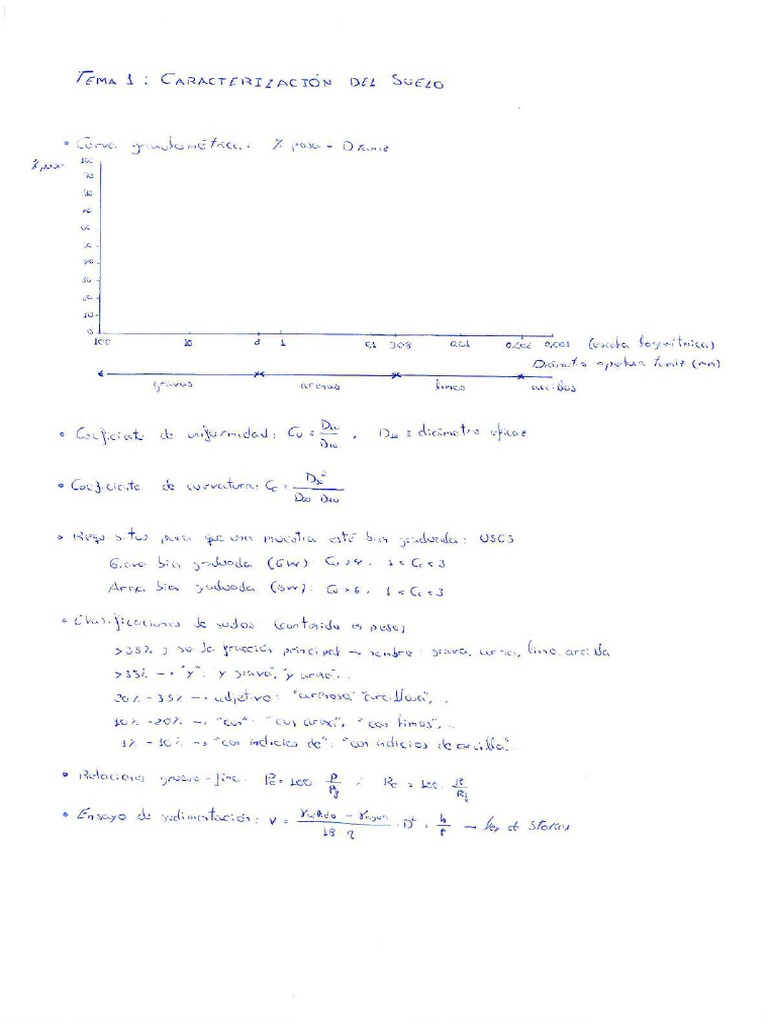 TEMA 1: CARACTERIZACIÓN DEL SUELO
• Curva granulométrica: % pasa - D tamiz
% pasa
100
90
80
70
60
50
40
30
20
10
0
100 10 2 1 0,1 0,08 0,01 0,002 0,001 (escala logarítmica)
Diámetro apertura tamiz (mm)
gravas arenas limos arcillas
• Coeficiente de uniformidad: Cu = D60/D10, D10 = diámetro eficaz
• Coeficiente de curvatura: Cc = D30²/D10 D60
• Requisitos para que una muestra esté bien graduada: USCS
Grava bien graduada (GW): Cu>4, 1<Cc<3
Arena bien graduada (SW): Cu>6, 1<Cc<3
• Clasificaciones de suelos (contenido en peso)
>35% y se la fracción principal → nombre: grava, arena, limo, arcilla
>35% → "y": "y grava", "y arena"...
20% - 35% → adjetivo: "arenosa" "arcillosa", ...
10% - 20% → "con": "con arena", "con limos", ...
1% - 10% → "con indicios de": "con indicios de arcilla"...
• Relaciones grueso-fino: = 100 · / = 100 ·
• Ensayo de sedimentación: V = γsólido - γagua/18 η · D² = h/t → ley de Stokes